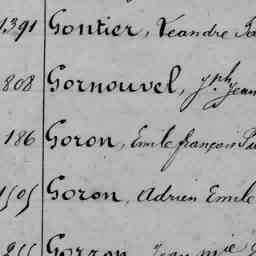 1391 Gontier, Léandre
808 Gornouvel, Jph Jean
186 Goron, Emile françois
1505 Goron, Adrien Emile
Gorron, Jean Mie